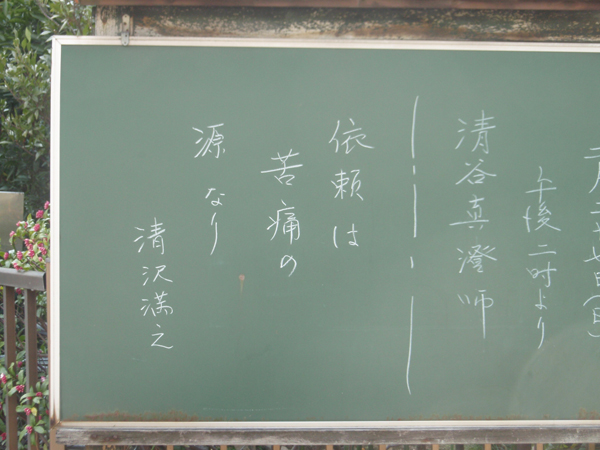 午後二時より
清谷真澄師
依頼は
苦痛の
源なり
清沢満之